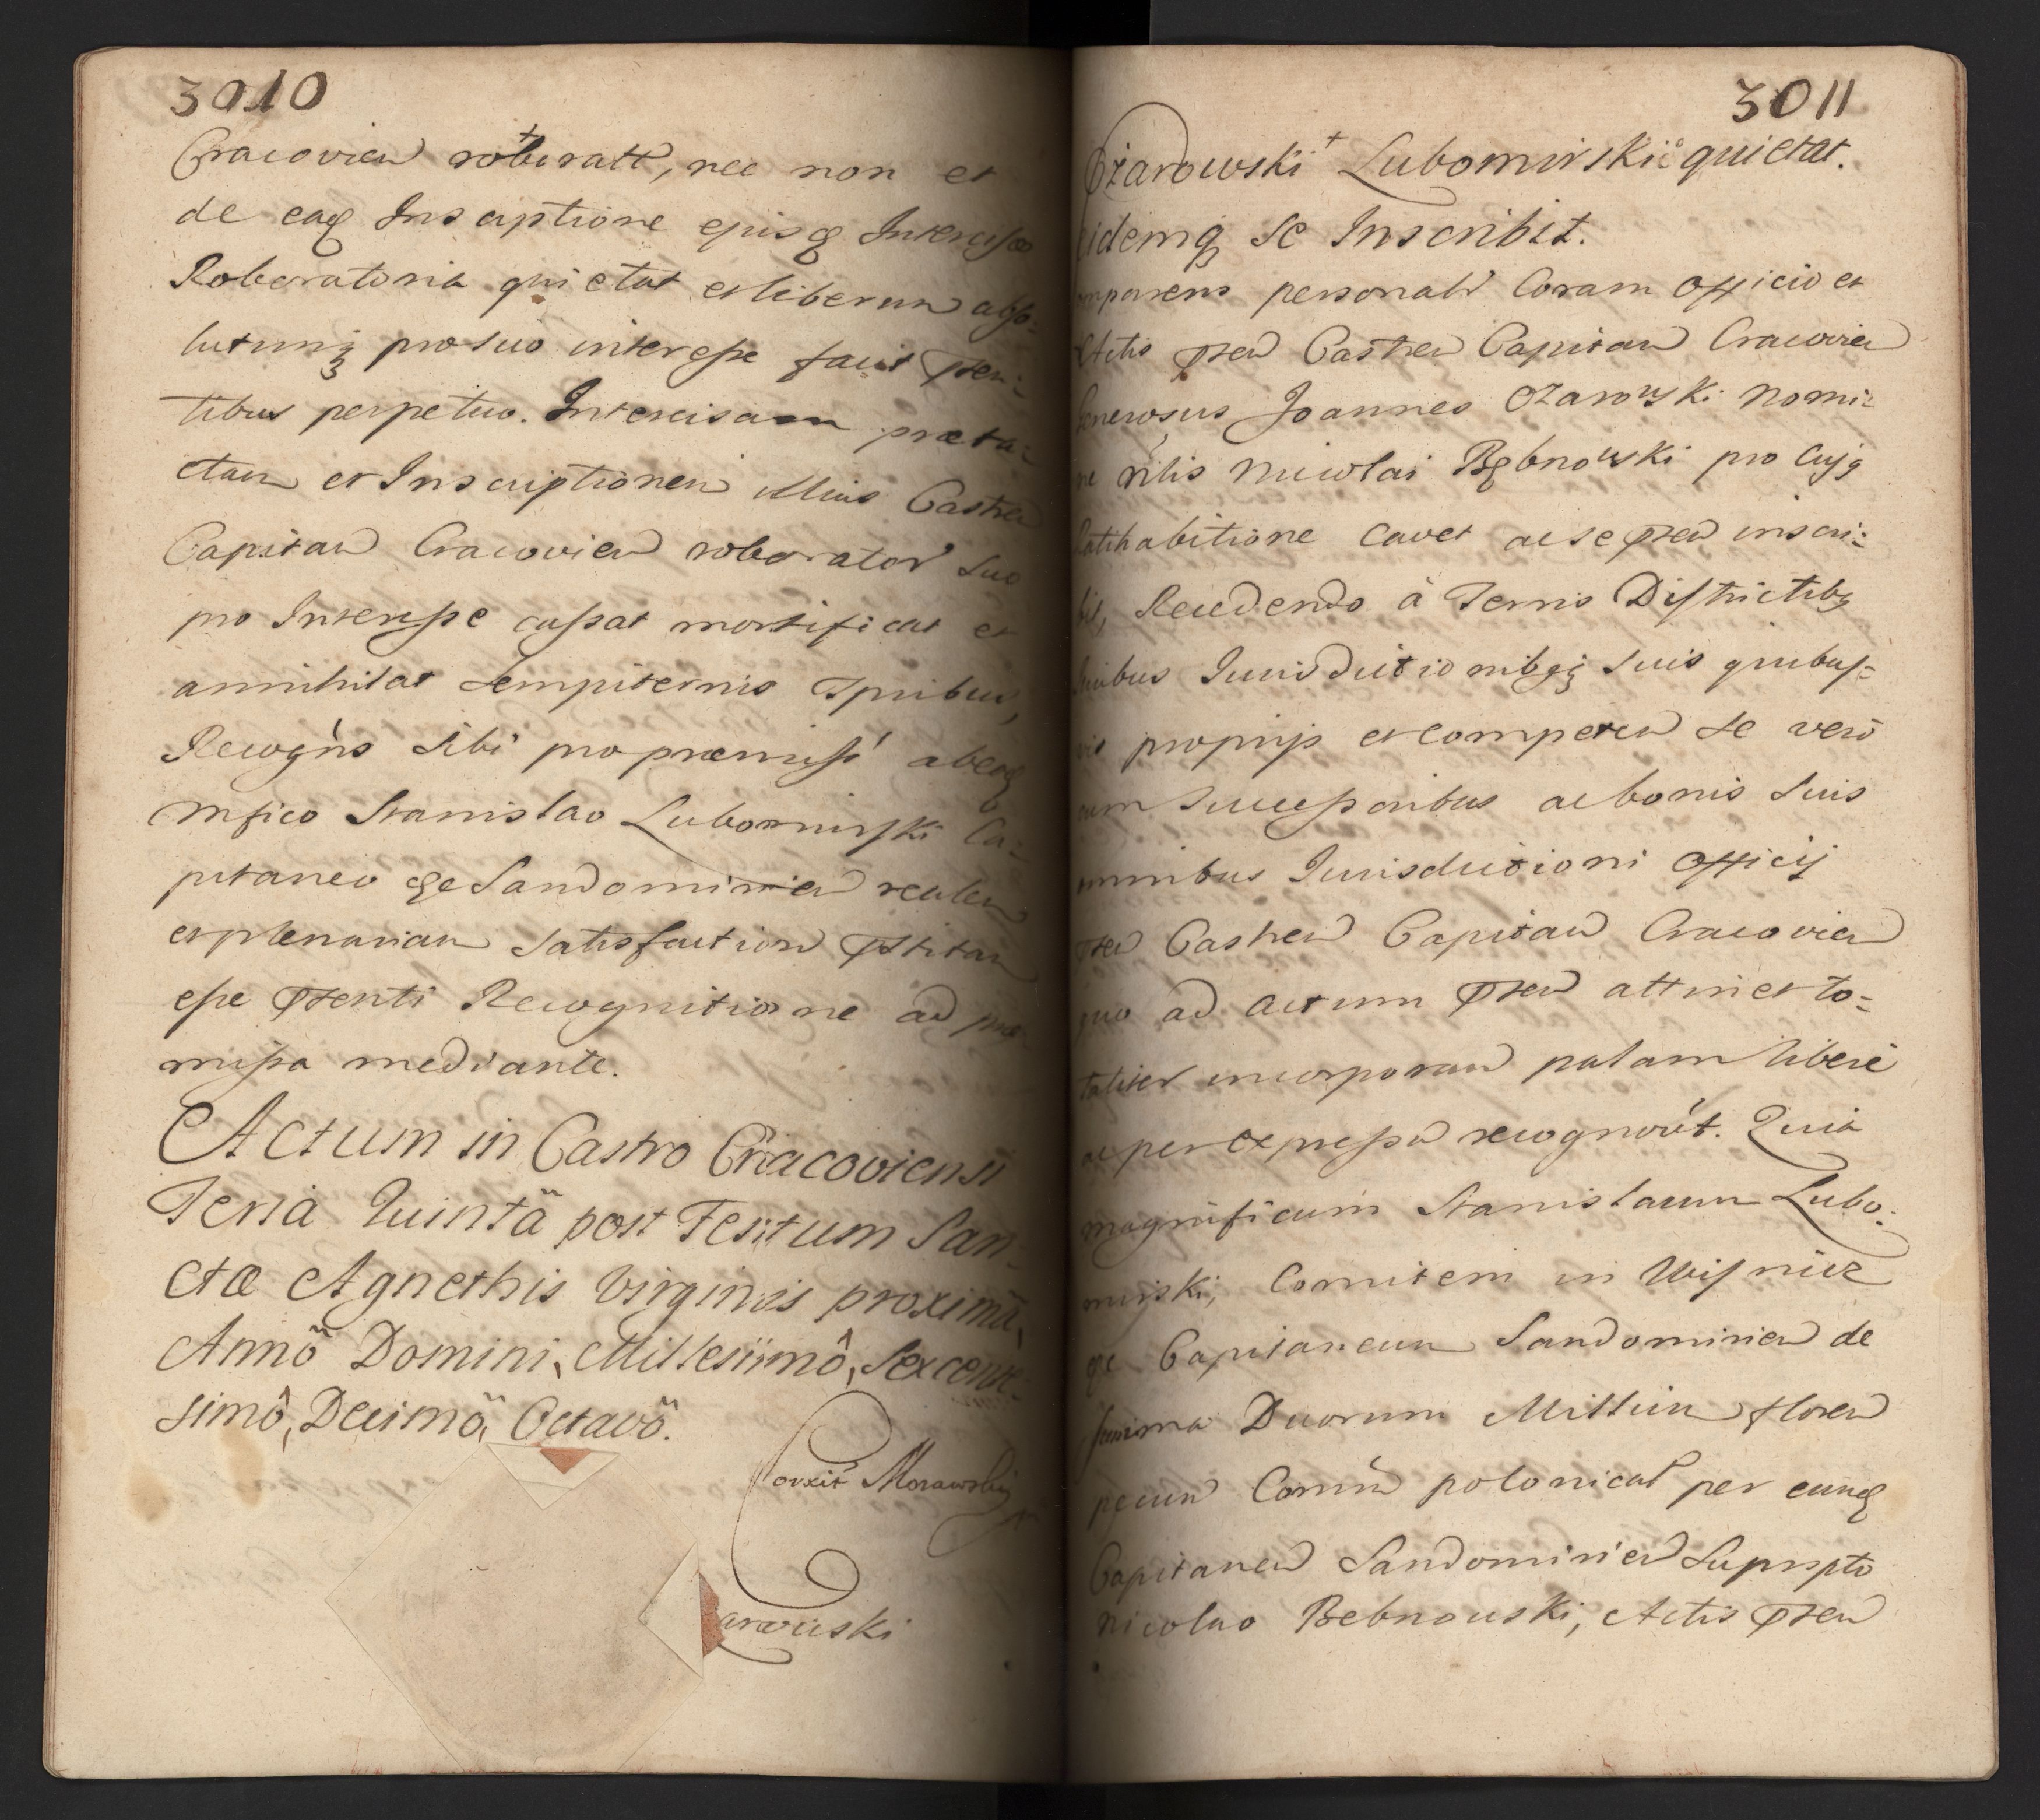 3010
Cracovien roboratt, nec non et
de eaq Inscriptione ejusq Intercisæ
Roboratoria quietat et liberum abso-
lutumq pro suo interesse facit pñen-
tibus perpetuo. Intercisam præta-
ctam et Inscriptionem illius Castren
Capitan Cracovien roborator suo
pro Interesse cassat mortificat et
annihilat sempiternis Tpribus,
Recogñs sibi pro præmiss abeoq
Mfico Stanislao Lubomirski Ca-
pitaneo ge Sandomirien realem
et plenariam satisfaction pstitam
esse pñenti Recognitione ad præ
missa mediante.
Actum in Castro Cracoviensi
Feria Quintä post Festum San-
ctæ Agnethis Virginis proximä,
Annô Domini, Millesimô, Sexcente-
simô, Decimô, Octavô.
Corexit Morawski
arowski
3011
Ożarowski Lubomirski quietat.
eidemq se Inscribit.
omparens personalr Coram Officio et
Actis pñen Castren Capitan Cracovien
Generosus Joannes Ożarowski nomi-
ne nlis Nicolai Bębnowski pro cujq
Ratihabitione cavet ac se pñen inscri-
bit, Recedendo à Terris Districtibq
Juribus Jurisdictionibqq suis quibus-
vis proprijs et competen se vero
cum Successoribus ac bonis suis
omnibus Jurisdictioni Officij
pñen Castren Capitan Cracovien
quo ad actum pñen attinet to-
taliter incorporan palam liberè
ac per expressu recognovit. Quia
magnificum Stanislaum Lubo-
mirski, Comitem in Wisnicz
ge Capitaneum Sandomirien de
summa Duorum Millium floren
pecun Comun polonical per eunq
Capitaneu Sandomirien Suprspto
Nicolao Bebnowski, Actis pñen